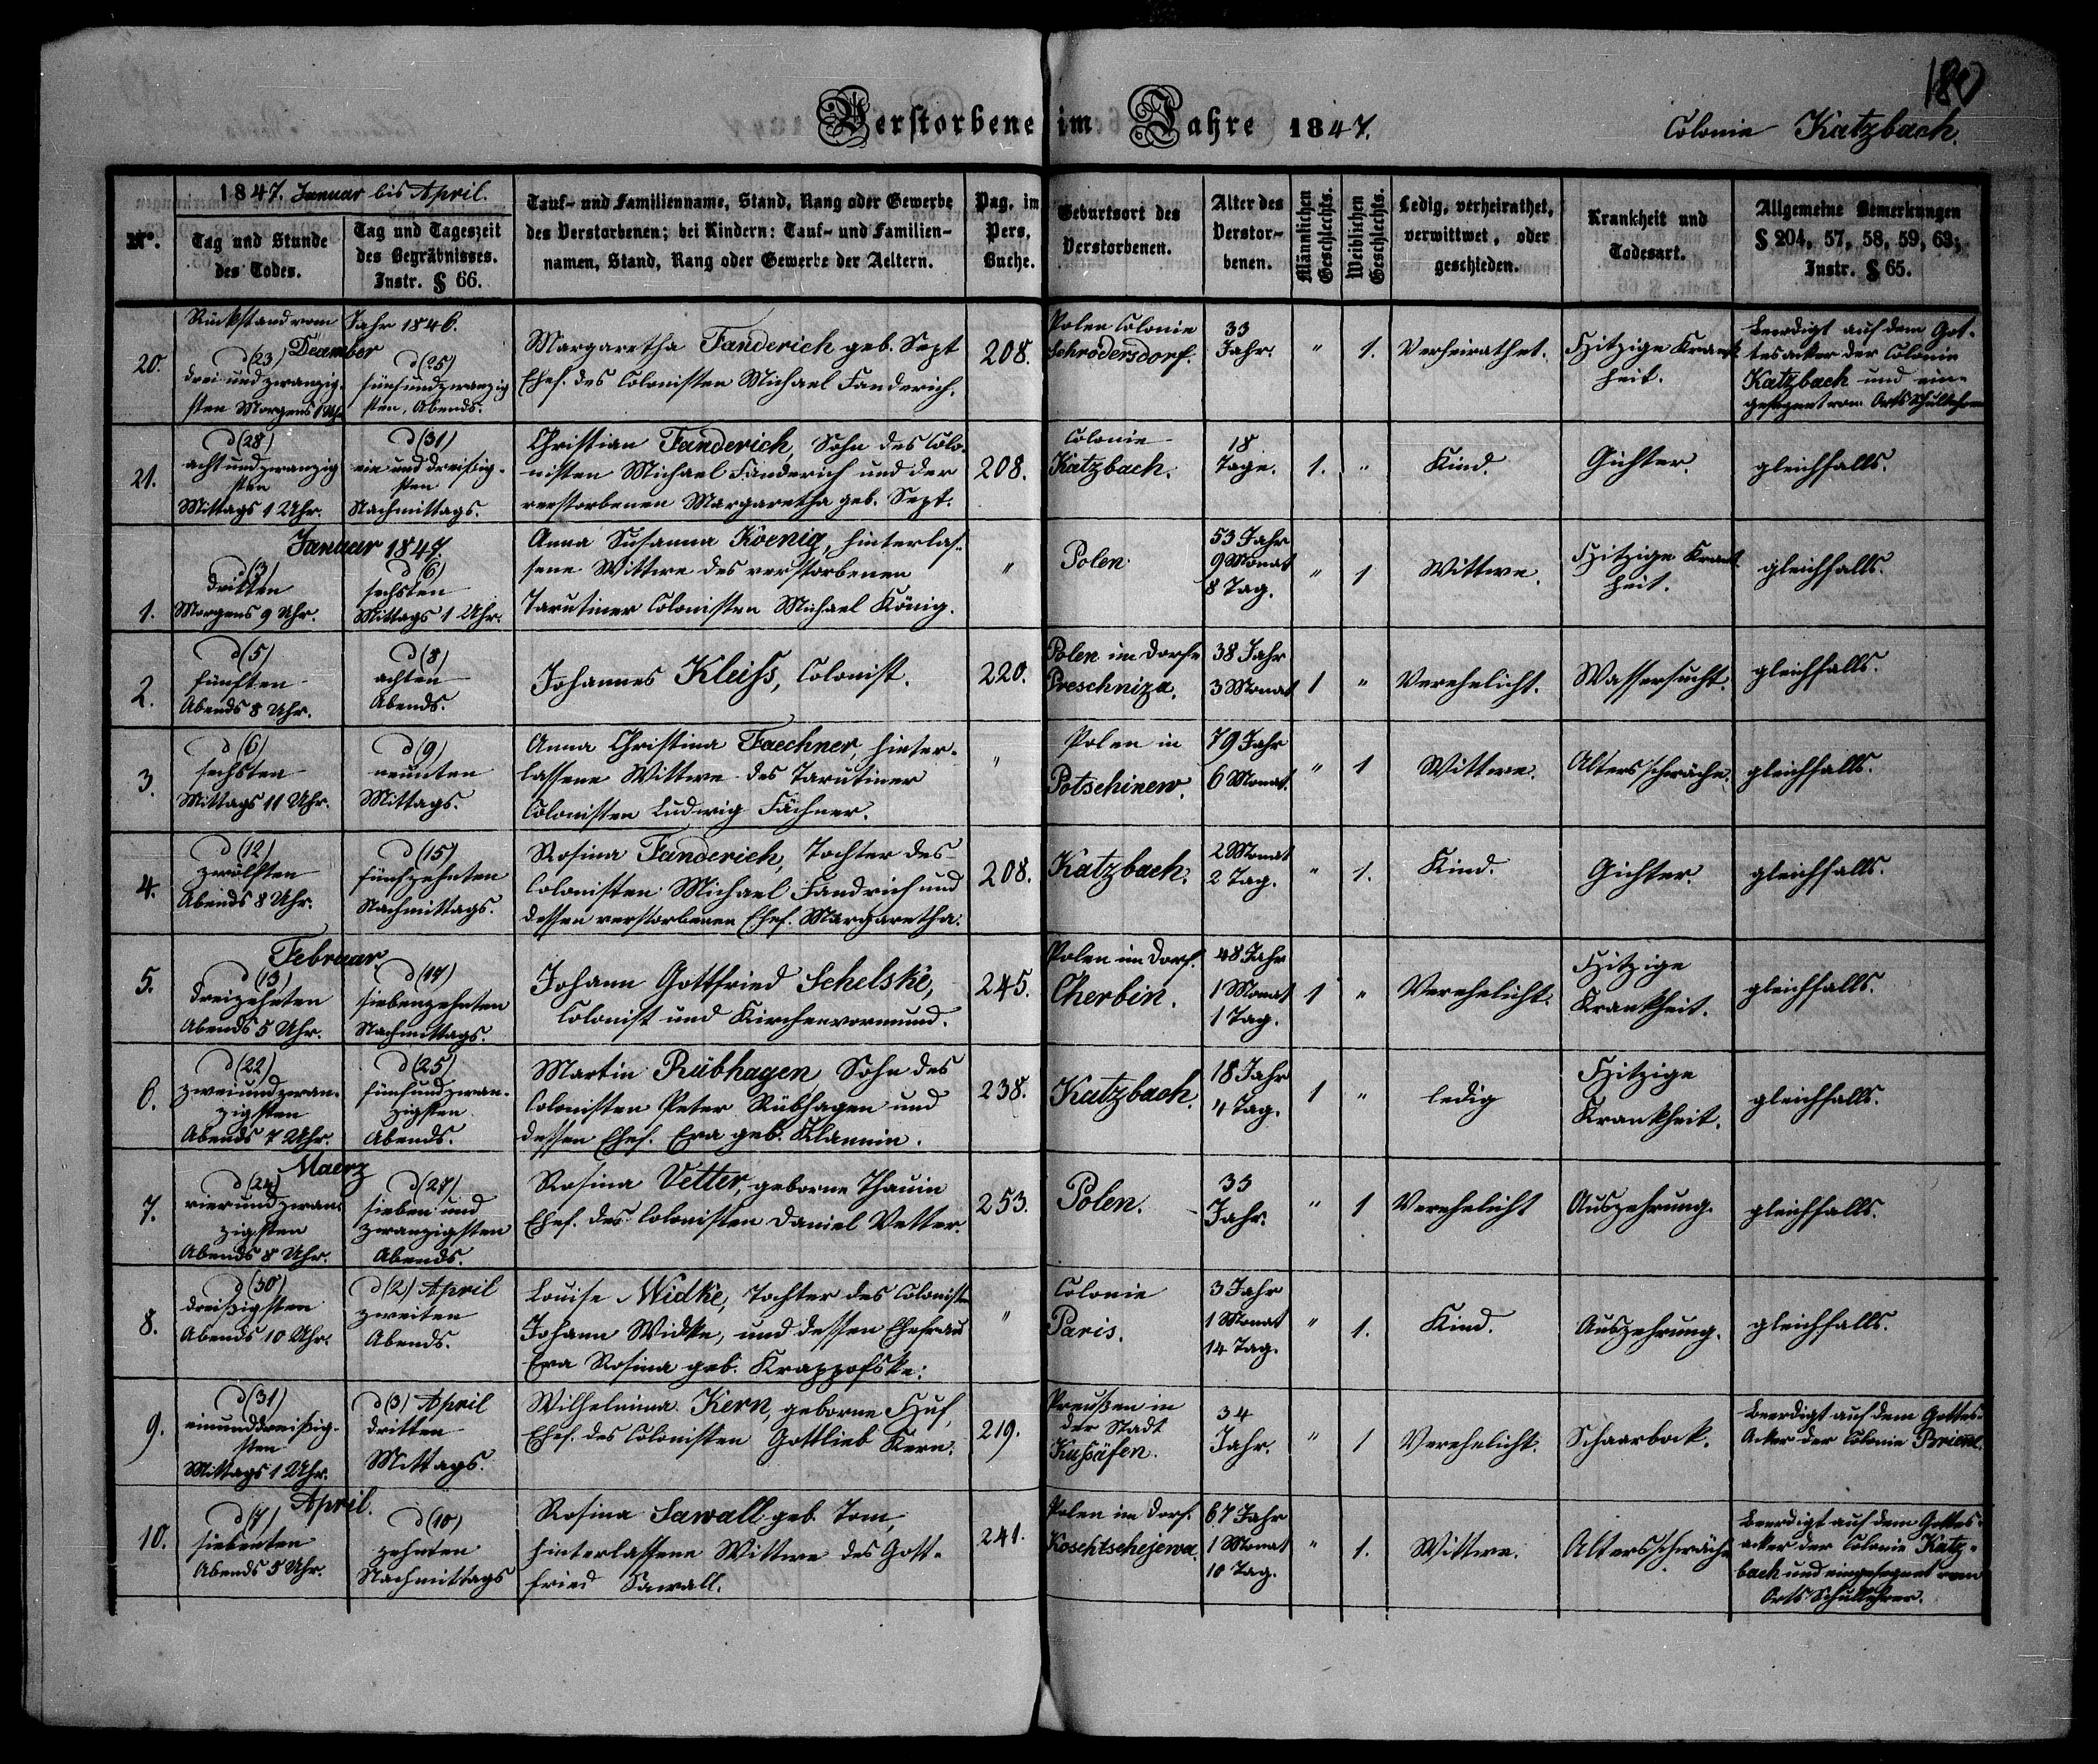 180
Verstorbene im Jahre 1847.
Colonie Katzbach.
No.
1847. Januar bis April.
Tag und Stunde
des Todes.
Tag und Tageszeit
des Begräbnisses.
Instr. § 66.
Tauf- und Familienname, Stand, Rang oder Gewerbe
des Verstorbenen; bei Kindern: Tauf- und Familien-
namen, Stand, Rang oder Gewerbe der Aeltern.
Pag. im
Pers.
Buche.
Geburtsort des
Verstorbenen.
Alter des
Verstor-
benen.
Männlichen
Geschlechts.
Weiblichen
Geschlechts.
Ledig, verheirathet,
verwittwet, oder
geschieden.
Krankheit und
Todesart.
Allgemeine Bemerkungen
§ 204, 57, 58, 59, 63;
Instr. § 65.
Rückstand vom Jahr 1846.
December
20.
d (23)
drei und zwanzig-
sten Morgens 1 Uhr
d (25)
fünfundzwanzig
sten, Abends.
Margaretha Fanderich geb. Sept
Ehef. des Colonisten Michael Fanderich.
208.
Polen Colonie
Schrodersdorf.
33
Jahr.
" 1.
Verheirathet.
Hitzige Krank
heit.
Beerdigt auf dem Got-
tesacker der Colonie
Katzbach und ein-
gesegnet vom Orts Schullehrer
21.
d (28)
acht und zwanzig
sten
Mittags 1 Uhr.
d (31)
ein und dreißig-
sten
Nachmittags.
Christian Fanderich, Sohn des Colo-
nisten Michael Fanderich und der
verstorbenen Margaretha geb. Sept.
208.
Colonie
Katzbach.
18
Tage.
1. "
Kind.
Gichter.
gleichfalls.
Januar 1847.
1.
d (3)
dritten
Morgens 9 Uhr.
d (6)
sechsten
Mittags 1 Uhr.
Anna Susanna Koenig, hinterlas-
sene Wittwe des verstorbenen
Tarutiner Colonisten Michael König.
"
Polen
53 Jahr
9 Monat
8 Tag.
" 1
Wittwe.
Hitzige Krank
heit.
gleichfalls.
2.
d (5)
fünften
Abends 8 Uhr.
d (8)
achten
Abends.
Johannes Kleiss, Colonist.
220.
Polen im Dorfe
Preschniza.
38 Jahr
3 Monat
1 "
Verehelicht.
Wassersucht.
gleichfalls.
3.
d (6)
sechsten
Mittags 11 Uhr.
d (9)
neunten
Mittags.
Anna Christina Faechner, hinter-
lassene Wittwe des Tarutiner
Colonisten Ludwig Fächner.
"
Polen in
Potschinew.
79 Jahr
6 Monat.
" 1
Wittwe.
Altersschwäche.
gleichfalls.
4.
d (12)
zwölften
Abends 8 Uhr.
d (15)
fünfzehnten
Nachmittags.
Rosina Fanderich, Tochter des
Colonisten Michael Fandrich und
dessen verstorbenen Ehef. Margaretha.
208.
Katzbach.
2 Monat
2 Tag.
" 1.
Kind.
Gichter.
gleichfalls.
Februar
5.
d (13)
dreizehnten
Abends 5 Uhr.
d (17)
siebenzehnten
Nachmittags.
Johann Gottfried Schelske,
Colonist und Kirchenvormund.
245.
Polen im Dorf.
Cherbin.
48 Jahr
1 Monat
1 Tag.
1 "
Verehelicht.
Hitzige
Krankheit.
gleichfalls.
6.
d (22)
zweiundzwan-
zigsten
Abends 7 Uhr.
d (25)
fünfundzwan-
zigsten
Abends.
Martin Rübhagen, Sohn des
Colonisten Peter Rübhagen und
dessen Ehef. Eva geb. Klannin.
238.
Katzbach.
18 Jahr
4 Tag.
1 "
ledig
Hitzige
Krankheit.
gleichfalls.
Maerz
7.
d (24)
vierundzwan-
zigsten
Abends 8 Uhr.
d (27)
sieben und
zwanzigsten
Abends.
Rosina Vetter, geborne Thauin
Ehef. des Colonisten Daniel Vetter.
253.
Polen.
33
Jahr.
" 1
Verehelicht
Auszehrung.
gleichfalls.
8.
d (30)
dreißigsten
Abends 10 Uhr.
d (2) April
zweiten
Abends.
Louise Widke, Tochter des Colonisten
Johann Widke, und dessen Ehefrau
Eva Rosina geb. Krappofske.
"
Colonie
Paris.
3 Jahr
1 Monat
14 Tag.
" 1.
Kind.
Auszehrung.
gleichfalls.
9.
d (31)
einunddreißig-
sten
Mittags 1 Uhr.
d (3) April
dritten
Mittags.
Wilhelmina Kern, geborne Huf,
Ehef. des Colonisten Gottlieb Kern.
219.
Preußen in
der Stadt
34
Jahr.
" 1
Verehelicht.
Scharbock.
Beerdigt auf dem Gottes-
Acker der Colonie Brienne.
April.
10.
d (7)
siebenten
Abends 5 Uhr.
d (10)
zehnten
Nachmittags
Rosina Sawall geb. Tom,
hinterlassene Wittwe des Gott-
fried Sawall.
241.
Polen im Dorf.
Koschtschejewa.
67 Jahr
1 Monat
10 Tag.
" 1.
Wittwe.
Altersschwäche
Beerdigt auf dem Gottes-
acker der Colonie Katz-
bach und eingesegnet vom
Orts Schullehrer.